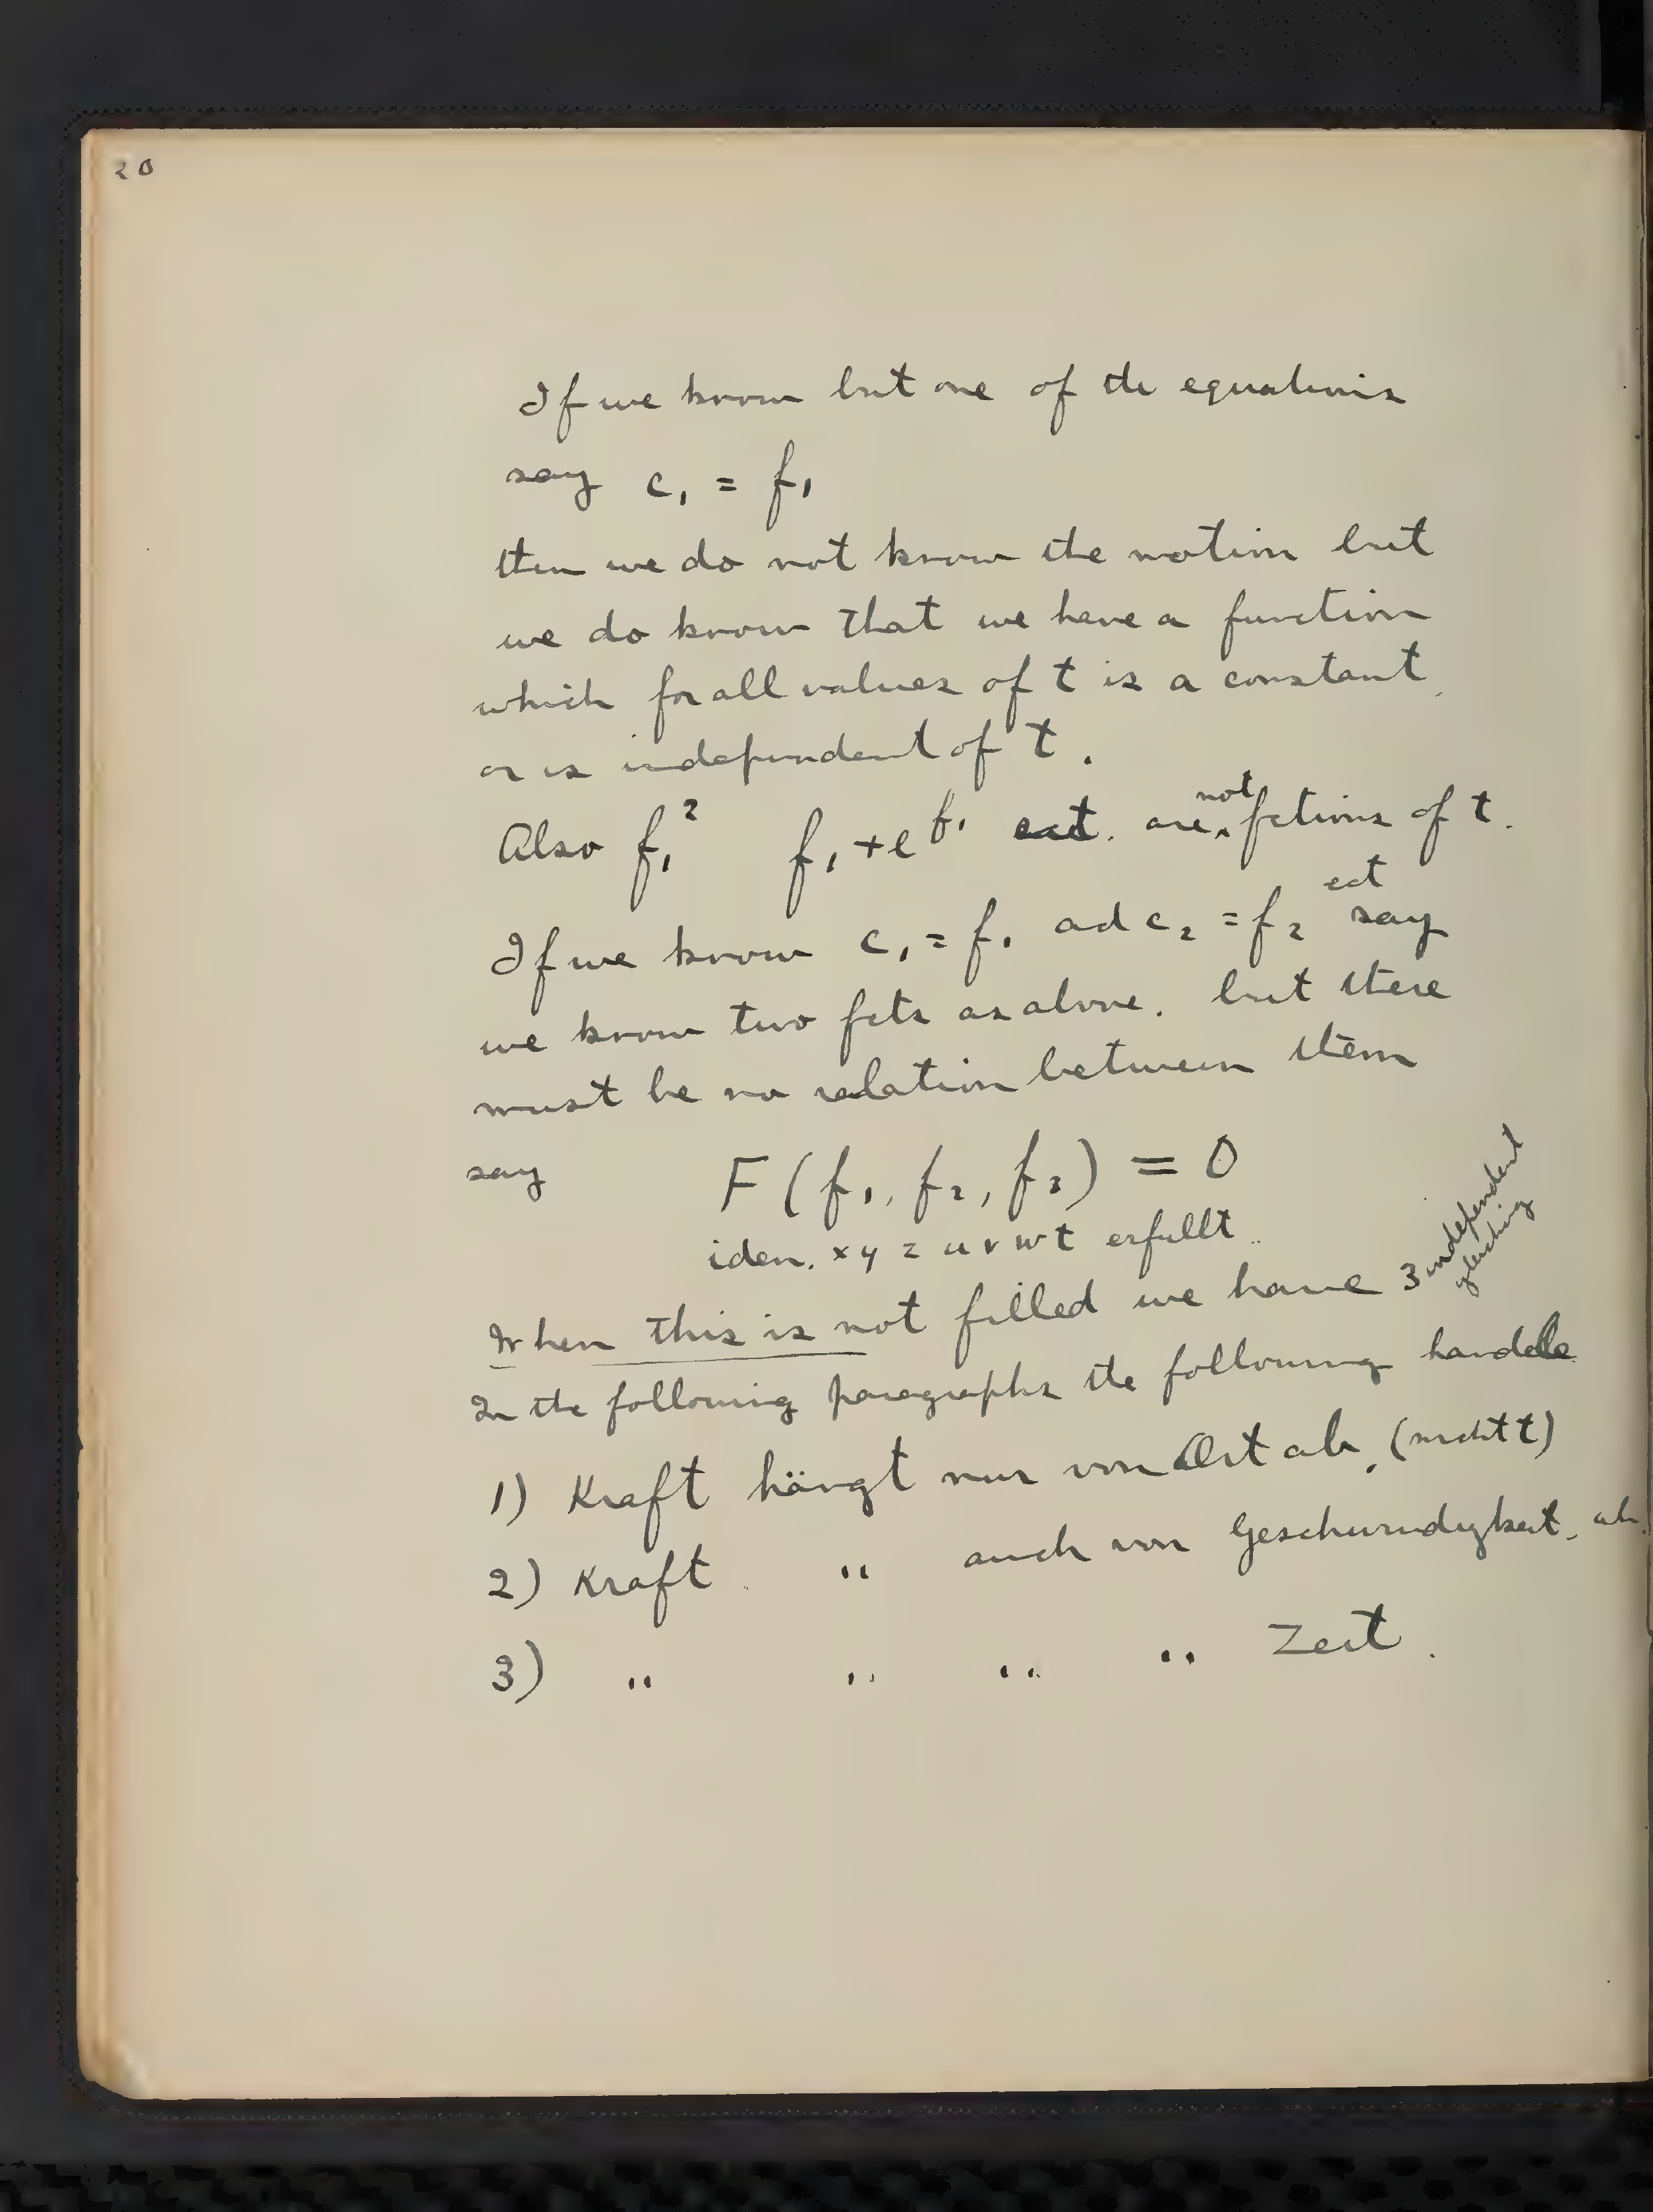 20
If we know but one of the equations
say c₁ = f₁
then we do not know the motion but
we do know that we have a function
which for all values of t is a constant
or is independent of t.
Also f₁² f₁ + e^f₁ ect. are not fctions of t.
If we know c₁ = f₁ ad c₂ = f₂ ect say
we know two fcts as above. but there
must be no relation between them
say F(f₁, f₂, f₃) = 0
iden. x y z u v w t erfullt.
When this is not filled we have 3 independent gleichung
In the following paragraphs the following handele
1) Kraft hängt nur von Ort ab, (nicht t)
2) Kraft " auch von Geschwindigkeit ab.
3) " " " " Zeit.